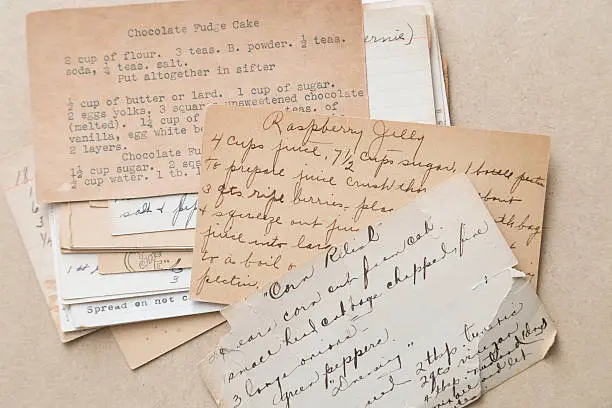 Chocolate Fudge Cake
2 cup of flour. 3 teas. B. powder. ½ teas.
soda, ¼ teas. salt.
Put altogether in sifter
½ cup of butter or lard. 1 cup of sugar.
2 eggs yolks, 3 squar unsweetened chocolate
(melted). 1¼ cup of teas. of
vanilla, egg white be
2 layers.
Chocolate Fu
1½ cup sugar. 2 sqs
½ cup water. 1 tb.
ernie)
Raspberry Jelly
4 cups juice, 7½ cups sugar, 1 bottle pectin
To prepare juice crush tho about
3 qts ripe berries. place th bag
& squeeze out jui
juice into larg
to a boil o
pectin,
salt &
Spread on not c
18
"Corn Relish"
ears corn cut from cob.
small head cabbage chopped fine
3 large onions
green peppers.
"Dressing"
2 tbsp tumeric
2 qts vinegar
4 tbsp mustard
and let